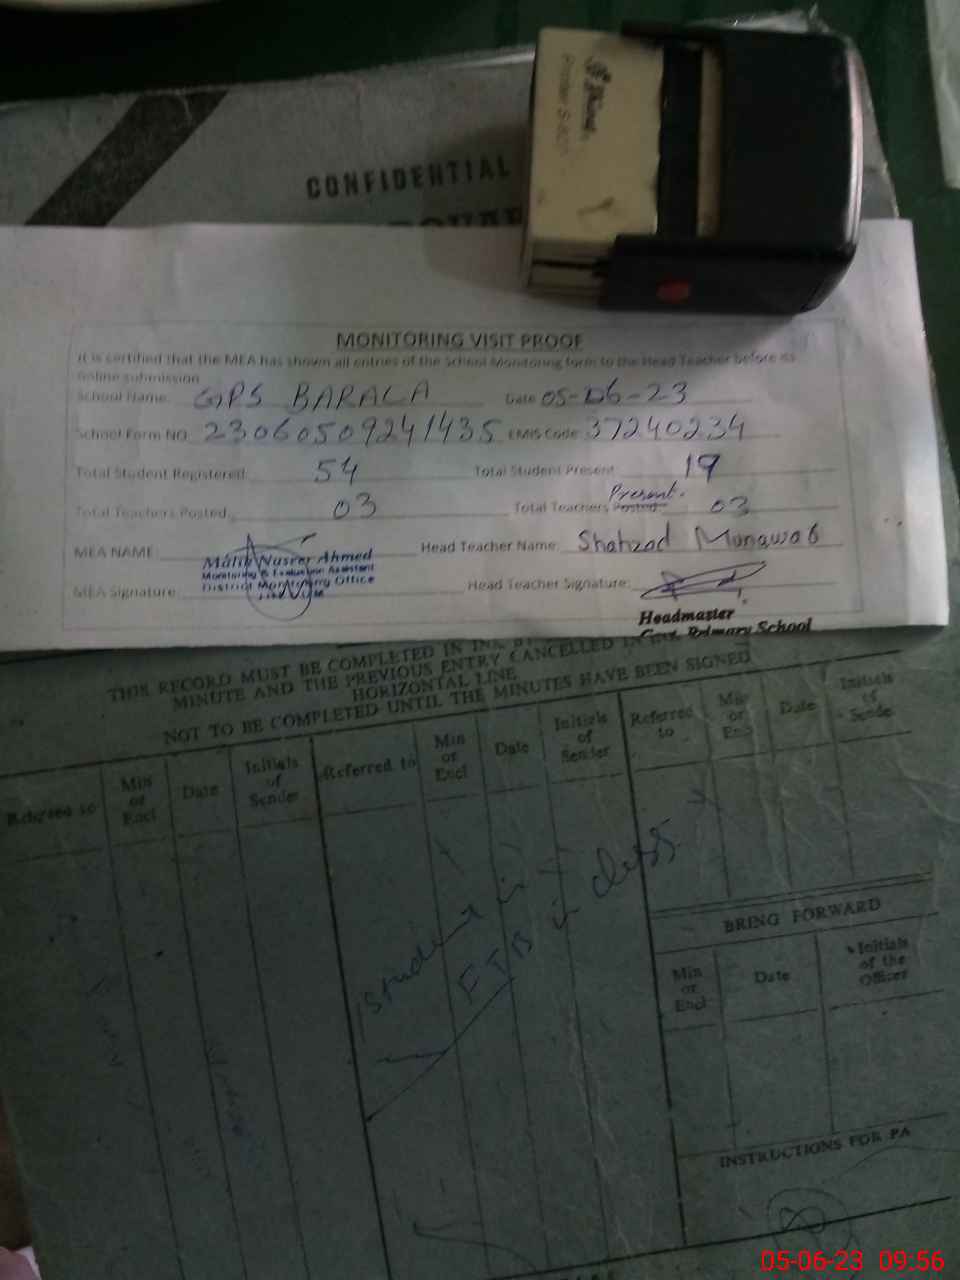 Shiny
Printer S-827
CONFIDENTIAL
MONITORING VISIT PROOF
It is certified that the MEA has shown all entries of the School Monitoring form to the Head Teacher before its
online submission
School Name: GPS BARALA Date 05-06-23
School Form NO 23060509241435 EMIS Code: 37240234
Total Student Registered: 54 Total Student Present 19
Total Teachers Posted: 03 Total Teachers Posted: Present. 03
MEA NAME: Malik Nusrer Ahmed Head Teacher Name: Shahzad Munawab
Monitoring & Evaluation Assistant
District Monitoring Office
MEA Signature: Head Teacher Signature:
Headmaster
Govt. Primary School
THIS RECORD MUST BE COMPLETED IN INK
MINUTE AND THE PREVIOUS ENTRY CANCELLED IN
HORIZONTAL LINE
NOT TO BE COMPLETED UNTIL THE MINUTES HAVE BEEN SIGNED
Referred to Min or Encl Date Initials of Sender Referred to Min or Encl Date Initials of Sender Referred to Min or Encl Date Initials of Sende
student in
FTB in class
BRING FORWARD
Min or Encl Date Initials of the Officer
INSTRUCTIONS FOR PA
05-06-23 09:56